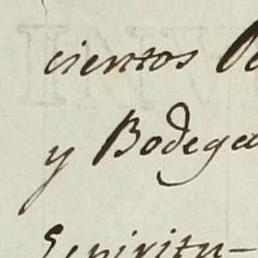 cientos
y Bodega
Espiritu-